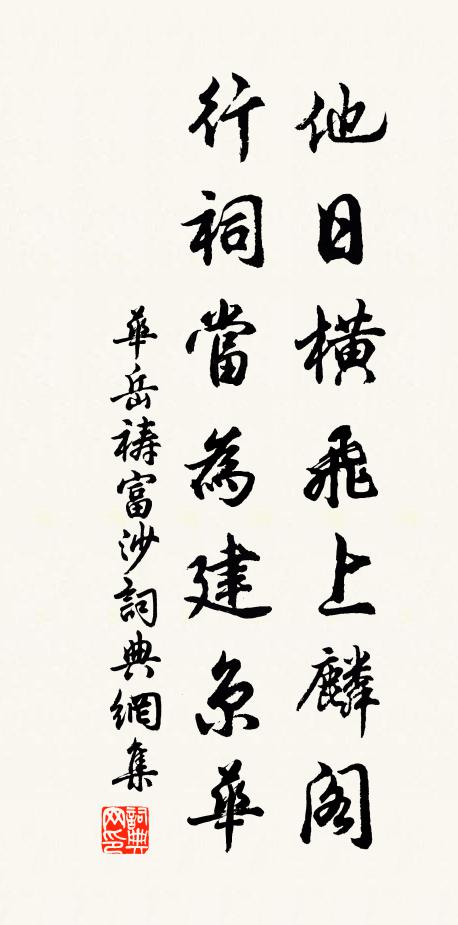 他日橫飛上麟閣
行祠當為建京華
華岳禱富沙詞典網集
詞典網印